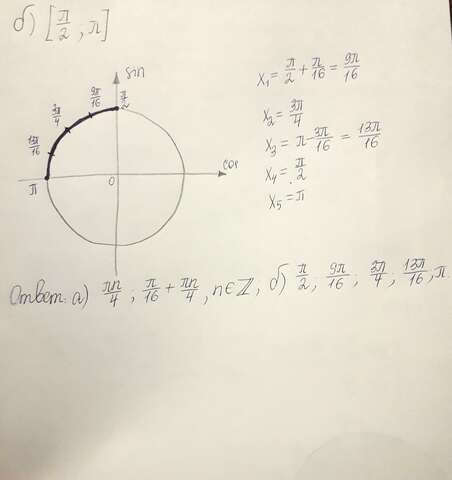 б) [π/2 ; π]
sin
π/2
9π/16
3π/4
13π/16
π
0
cos
x₁ = π/2 + π/16 = 9π/16
x₂ = 3π/4
x₃ = π - 3π/16 = 13π/16
x₄ = π/2
x₅ = π
Ответ: а) πn/4 ; π/16 + πn/4, n∈ℤ, б) π/2 ; 9π/16 ; 3π/4 ; 13π/16, π.